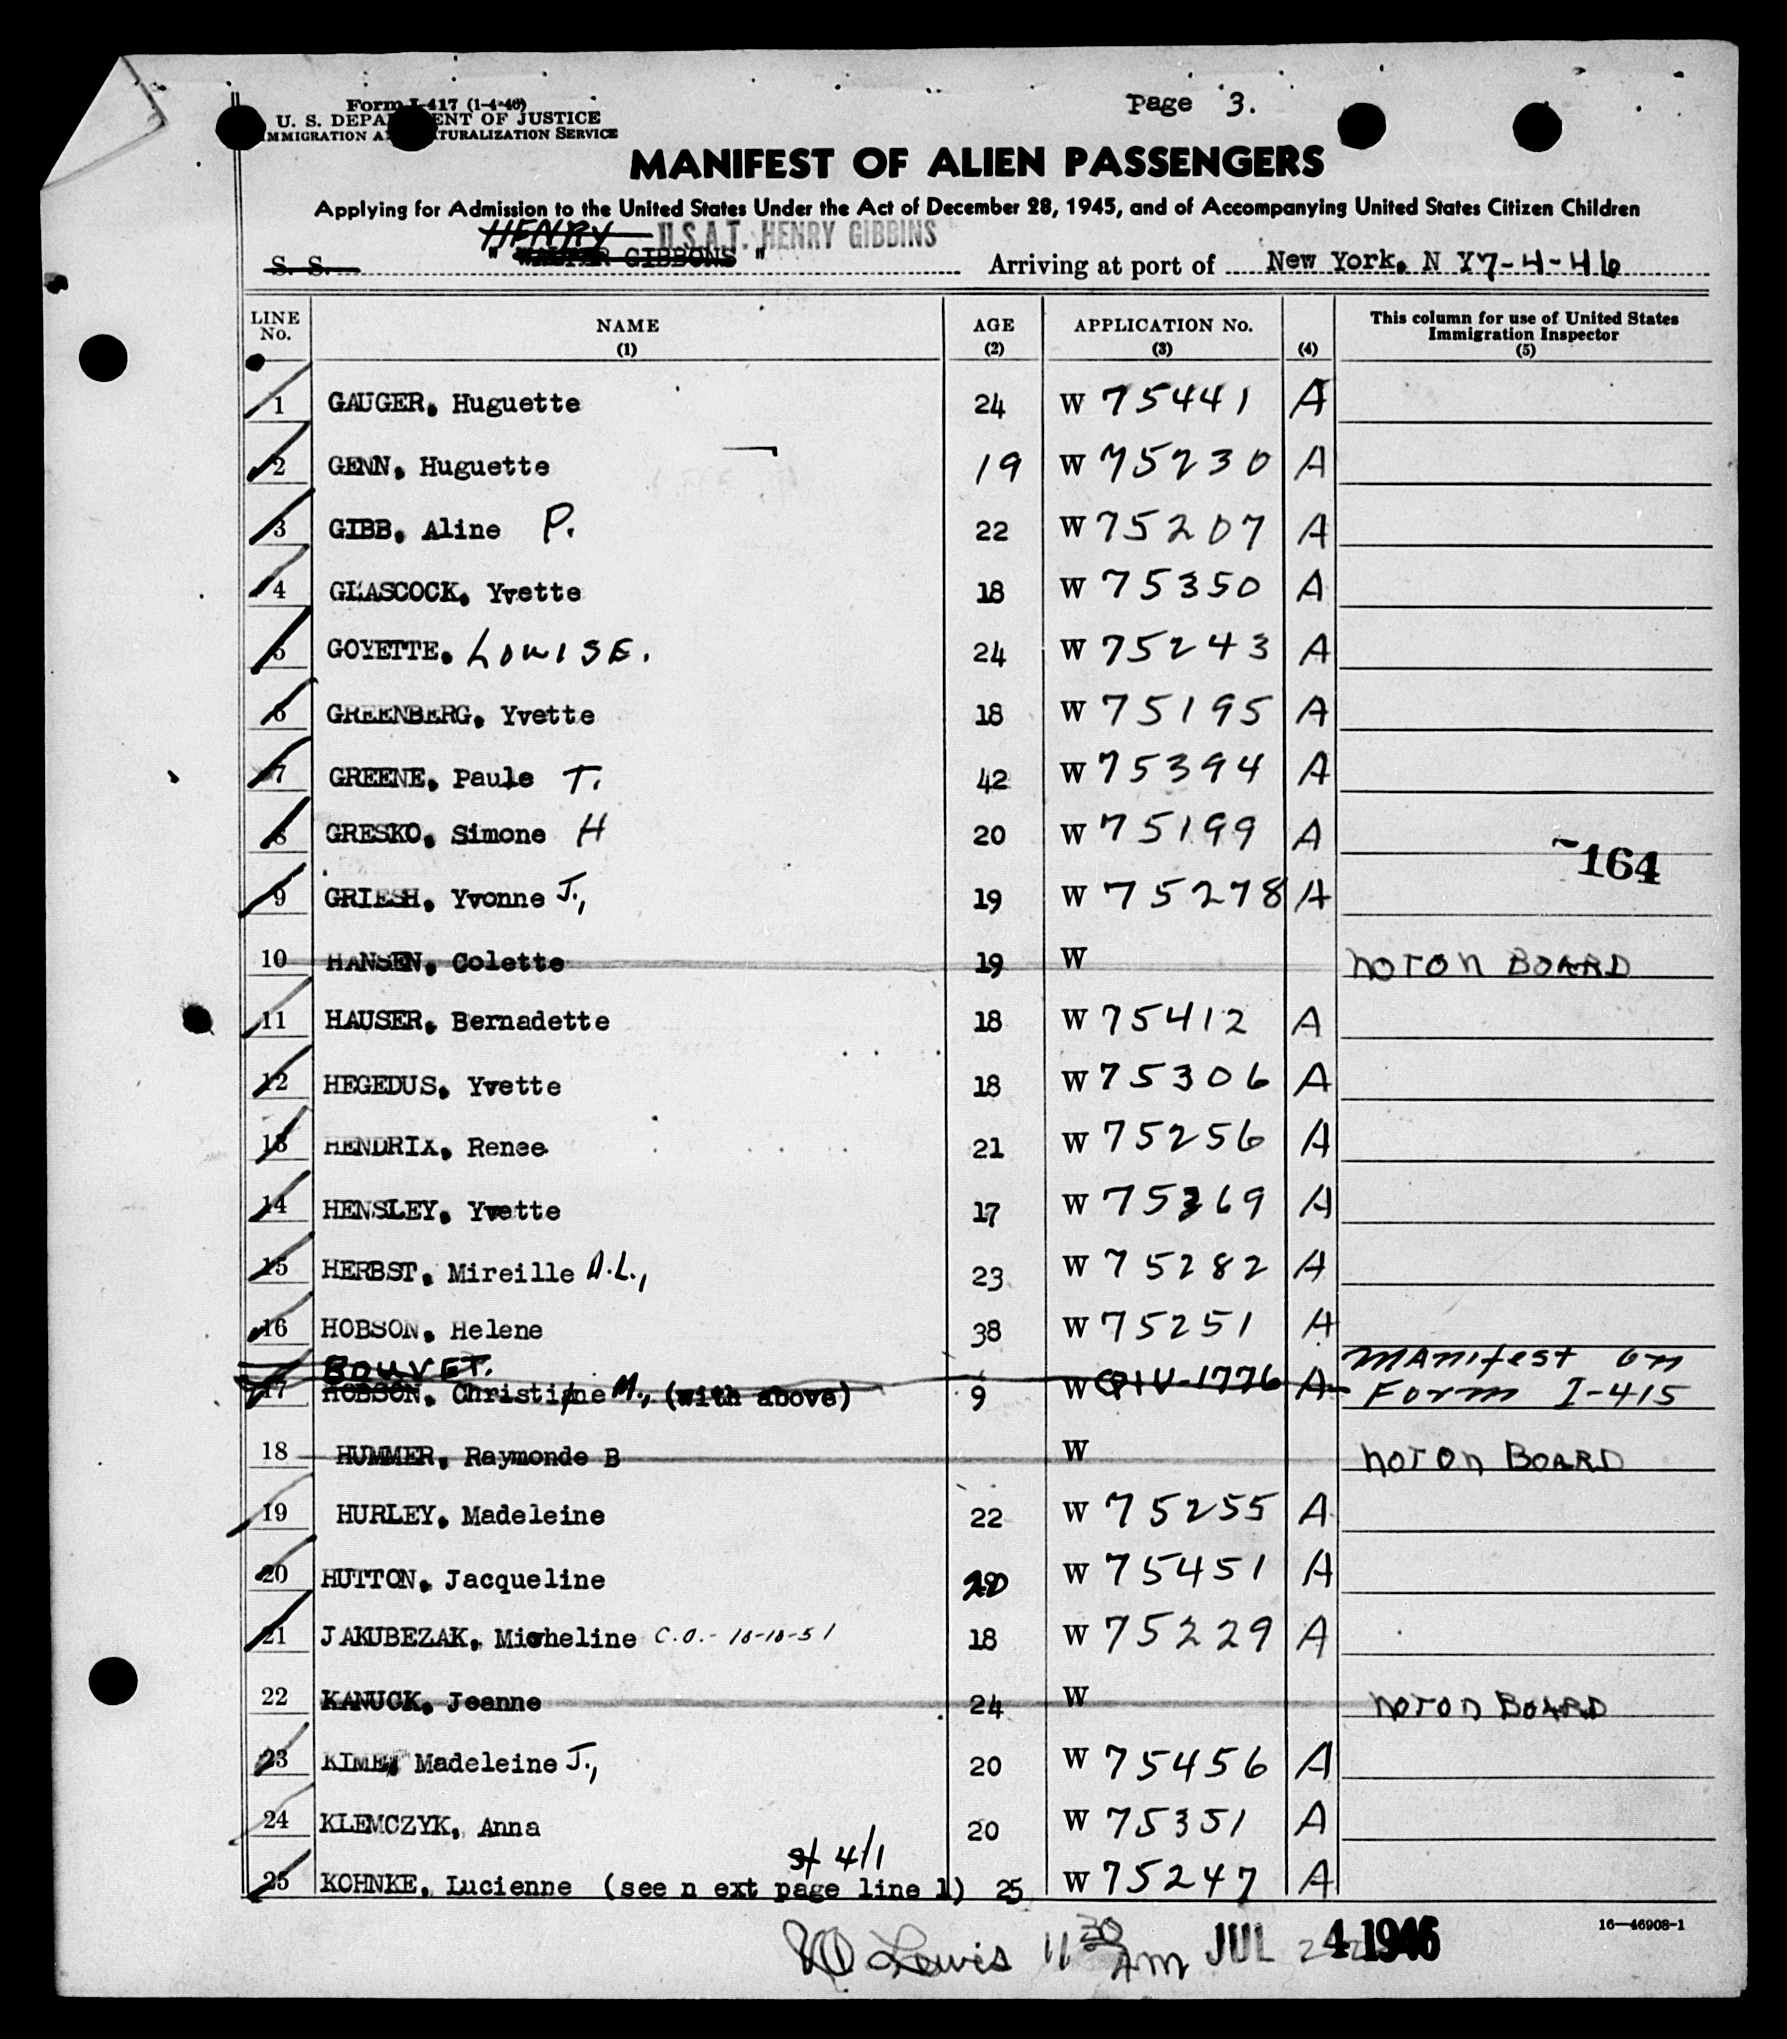 Form I-417 (1-4-46)
U. S. DEPARTMENT OF JUSTICE
IMMIGRATION AND NATURALIZATION SERVICE
Page 3.
MANIFEST OF ALIEN PASSENGERS
Applying for Admission to the United States Under the Act of December 28, 1945, and of Accompanying United States Citizen Children
HENRY U.S.A.T. HENRY GIBBINS
S. S. " GIBBONS " Arriving at port of New York, N Y 7-4-46
LINE No. NAME (1) AGE (2) APPLICATION No. (3) (4) This column for use of United States Immigration Inspector (5)
1 GAUGER, Huguette 24 W 75441 A
2 GENN, Huguette 19 W 75230 A
3 GIBB, Aline P. 22 W 75207 A
4 GLASCOCK, Yvette 18 W 75350 A
5 GOYETTE, LOUISE. 24 W 75243 A
6 GREENBERG, Yvette 18 W 75195 A
7 GREENE, Paule T. 42 W 75394 A
8 GRESKO, Simone H 20 W 75199 A
164
9 GRIESH, Yvonne J., 19 W 75278 A
10 HANSEN, Colette 19 W NOT ON BOARD
11 HAUSER, Bernadette 18 W 75412 A
12 HEGEDUS, Yvette 18 W 75306 A
13 HENDRIX, Renee 21 W 75256 A
14 HENSLEY, Yvette 17 W 75369 A
15 HERBST, Mireille A.L., 23 W 75282 A
16 HOBSON, Helene 38 W 75251 A
BOUVET. Manifest on
17 HOBSON, Christine M., (with above) 9 W QIV-1776 A Form I-415
18 HUMMER, Raymonde B W NOT ON BOARD
19 HURLEY, Madeleine 22 W 75255 A
20 HUTTON, Jacqueline 20 W 75451 A
21 JAKUBEZAK, Micheline C.O.- 10-10-51 18 W 75229 A
22 KANUCK, Jeanne 24 W NOT ON BOARD
23 KIME, Madeleine J., 20 W 75456 A
24 KLEMCZYK, Anna 20 W 75351 A
st 4/1
25 KOHNKE, Lucienne (see n ext page line 1) 25 W 75247 A
16—46908-1
Lewis 11 30 AM JUL 4 1946